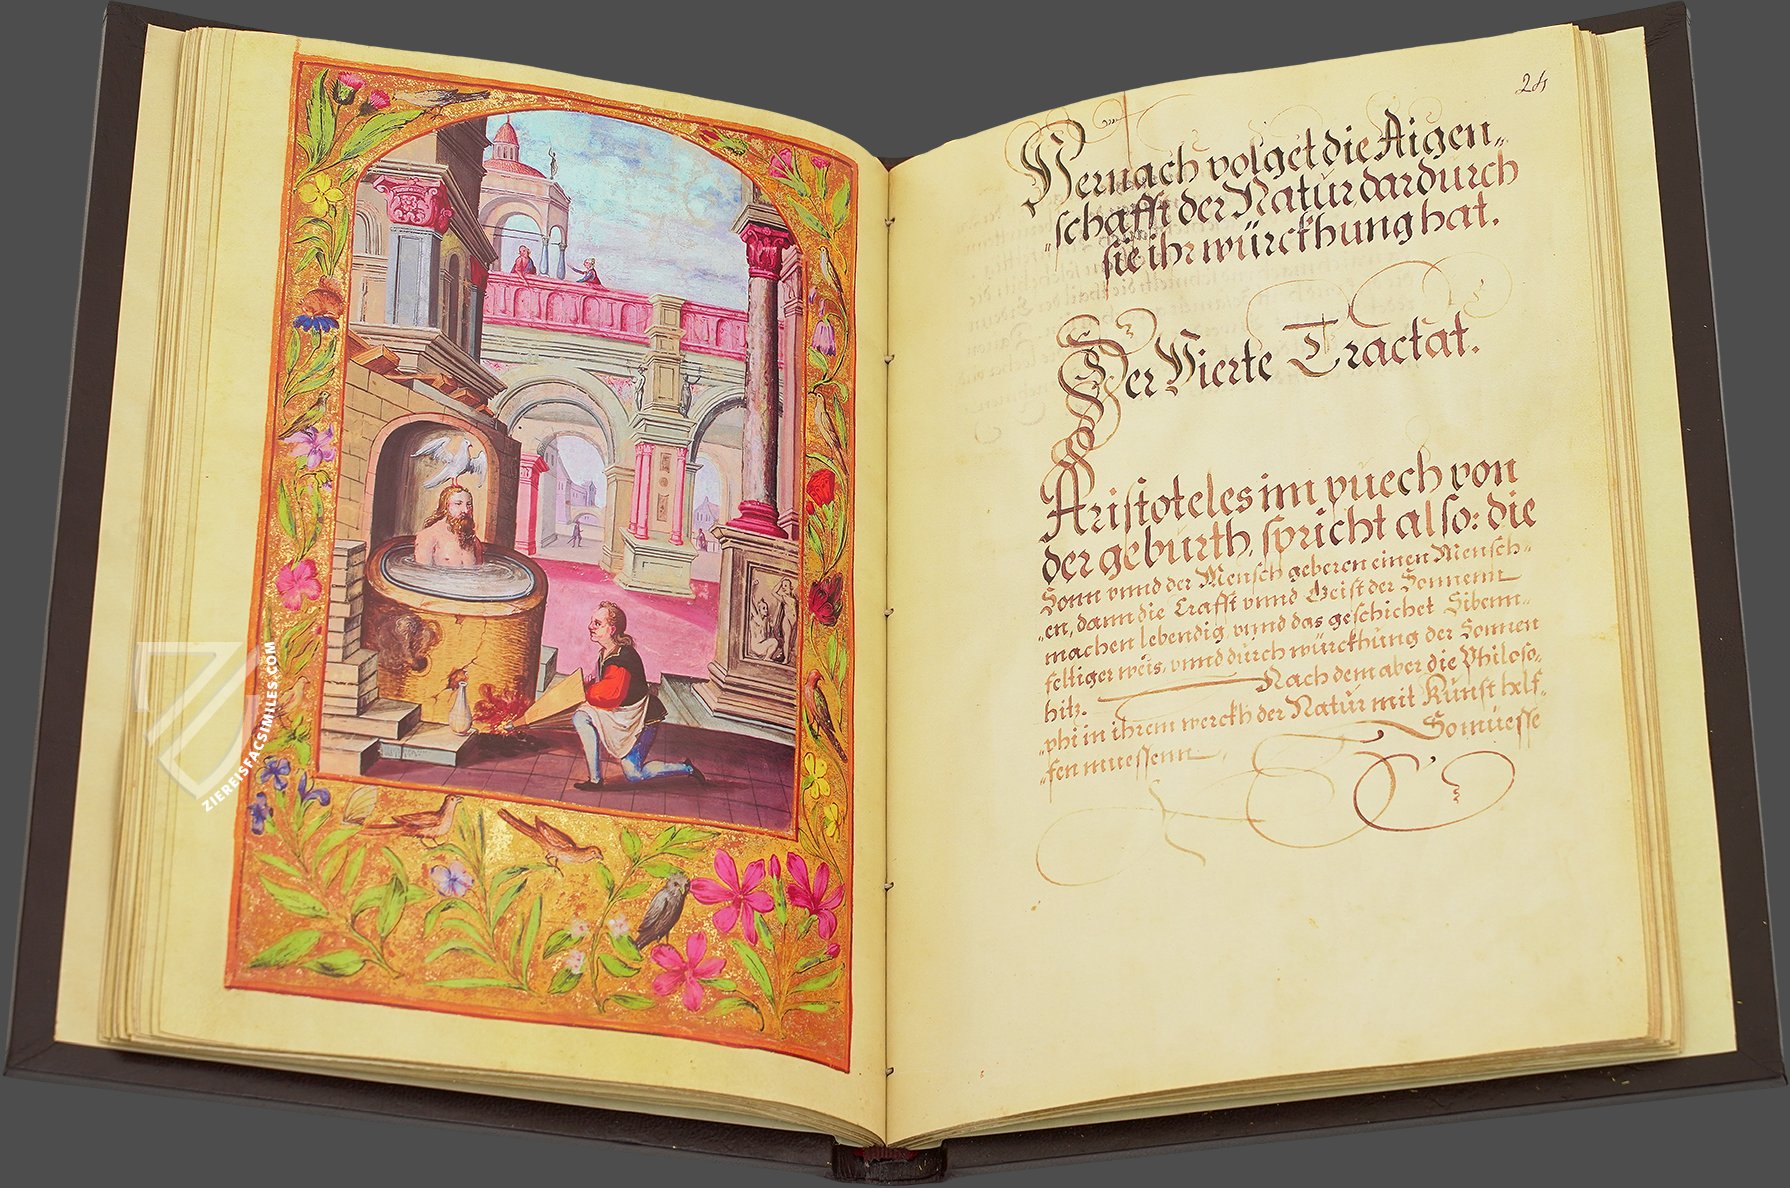 ZIEREISFACSIMILES.COM
24
Hernach volget die Aigen„
„schafft der Natur dardurch
sie ihr würckhung hat.
Der Vierte Tractat.
Aristoteles im puech von
der geburth, spricht also: die
Sonn vnnd der Mensch geberen einen Mensch„
„en, dann die Crafft vnnd Geist der Sonnenn
machen lebendig, vnnd das geschichet Sibenn„
feltiger weis, vnnd durch würckhung der Sonnen
hitz. Nach dem aber die Philoso„
„phi in ihrem werckh der Natur mit Kunst helf„
„fen muessenn, So müesse